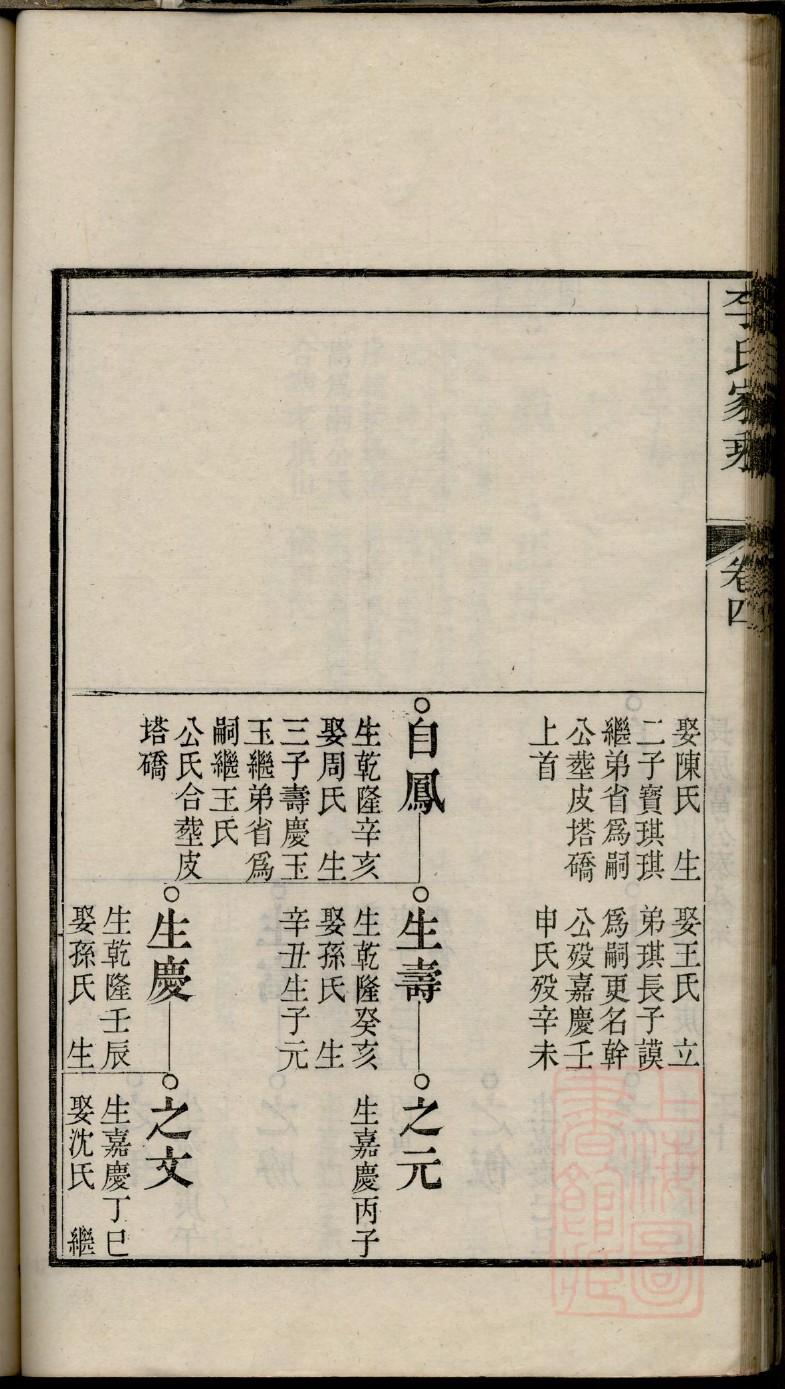 李氏家乘
卷四
娶陳氏　生
二子寶琪琪
繼弟省爲嗣
公塟皮塔礄
上首
娶王氏　立
弟琪長子謨
爲嗣更名幹
公歿嘉慶壬
申氏歿辛未
自鳳
生乾隆辛亥
娶周氏　生
三子壽慶玉
玉繼弟省爲
嗣繼王氏
公氏合塟皮
塔礄
生壽
生乾隆癸亥
娶孫氏　生
辛丑生子元
之元
生嘉慶丙子
生慶
生乾隆壬辰
娶孫氏　生
之文
生嘉慶丁巳
娶沈氏　繼
上海圖
書館藏